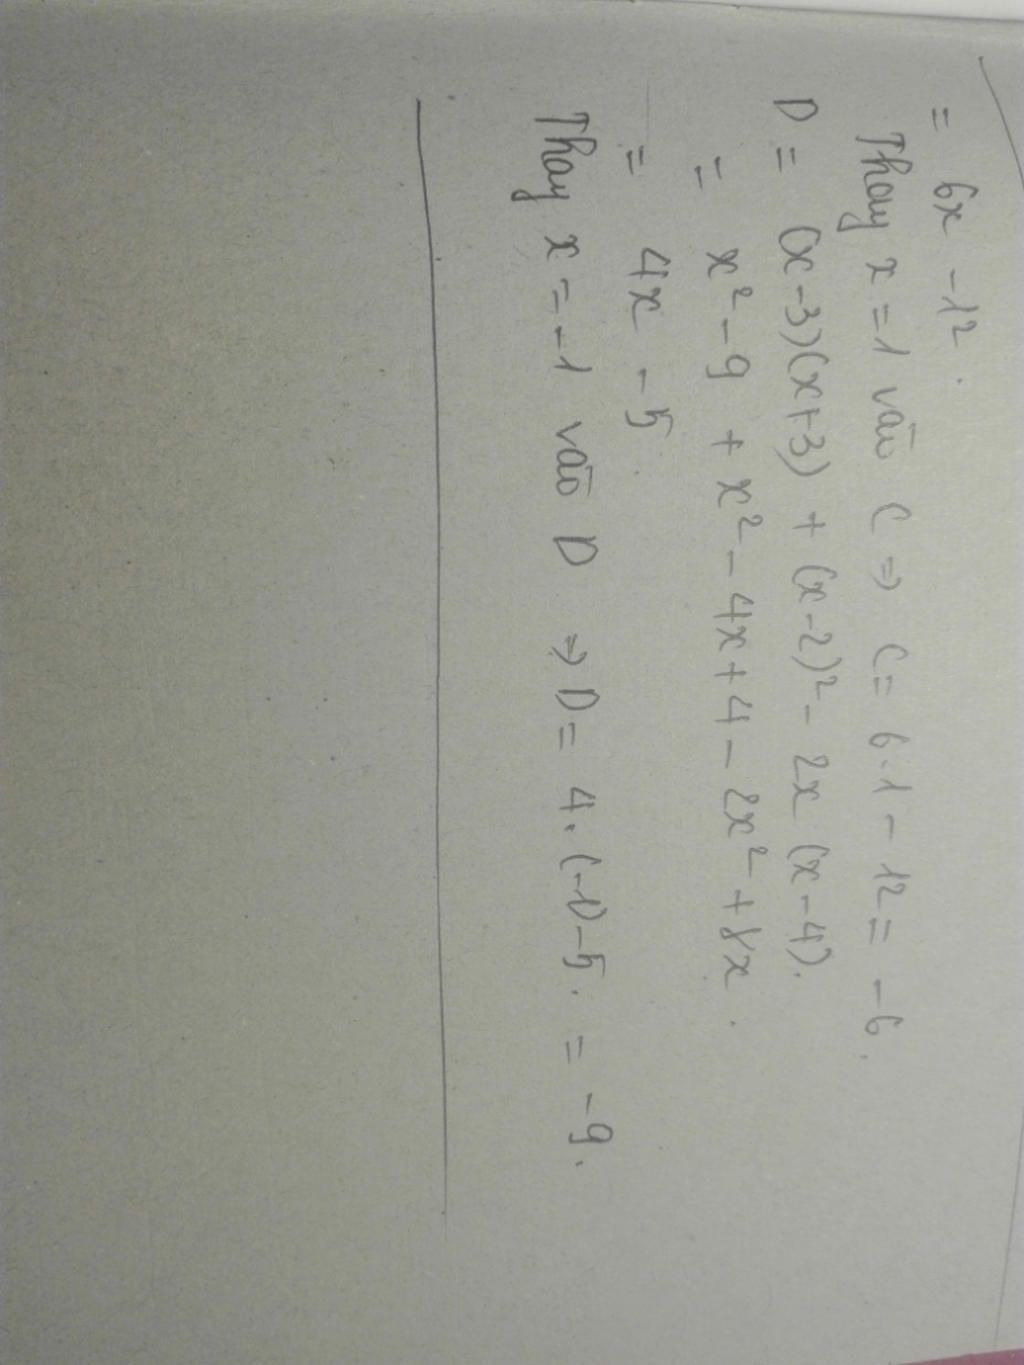 = 6x - 12.
Thay x = 1 vào C ⇒ C = 6.1 - 12 = -6.
D = (x-3)(x+3) + (x-2)² - 2x (x-4).
= x² - 9 + x² - 4x + 4 - 2x² + 8x.
= 4x - 5.
Thay x = -1 vào D ⇒ D = 4.(-1)-5. = -9.